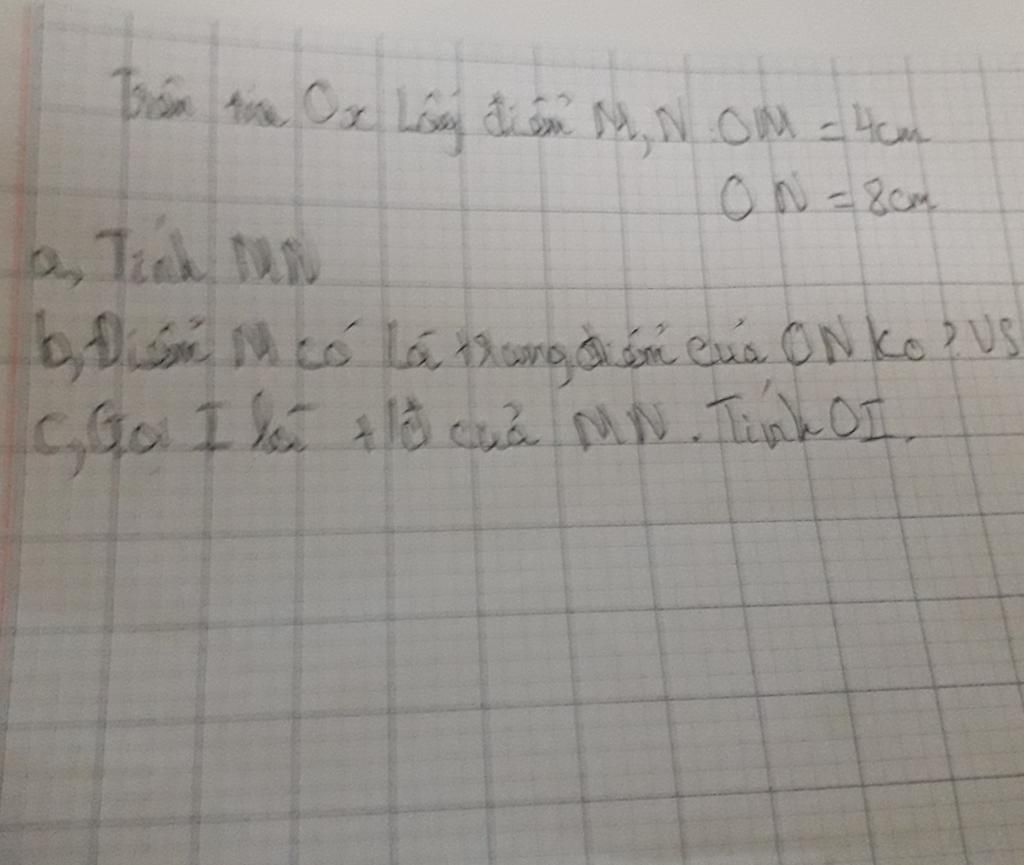 Trên tia Ox Lấy điểm M, N. OM = 4cm
ON = 8cm
a, Tính MN
b, Điểm M có là trung điểm của ON ko? VS
c, Gọi I là tđ của MN. Tính OI.